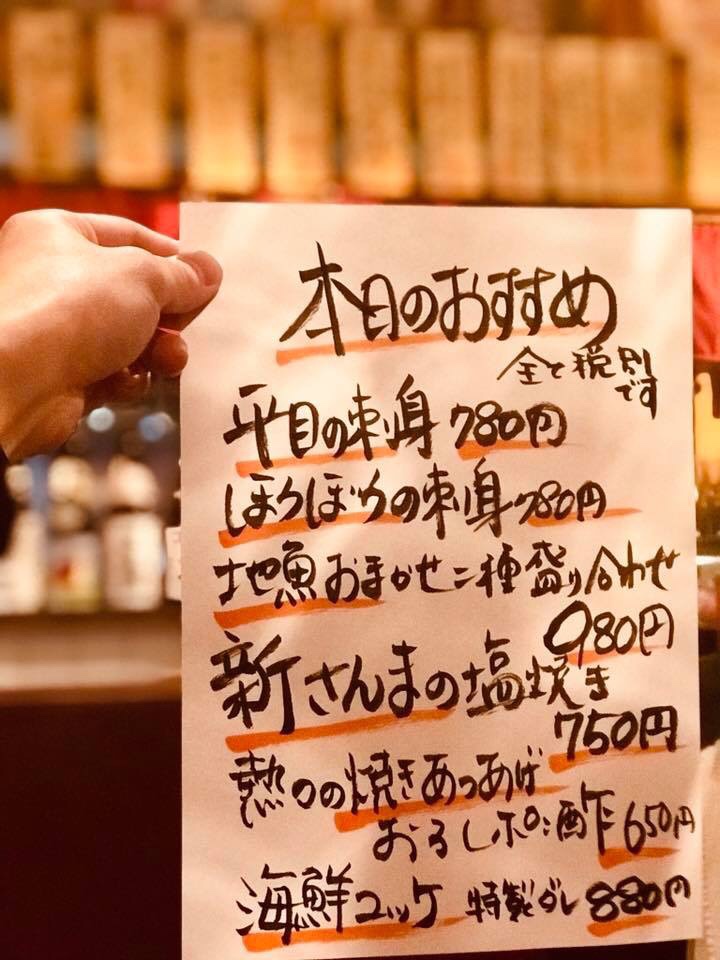 本日のおすすめ
全て税別
です
平目の刺身 780円
ほうぼうの刺身 780円
地魚おまかせ二種盛り合わせ
980円
新さんまの塩焼き
750円
熱々の焼きあつあげ
おろしポン酢 650円
海鮮ユッケ 特製ダレ 880円